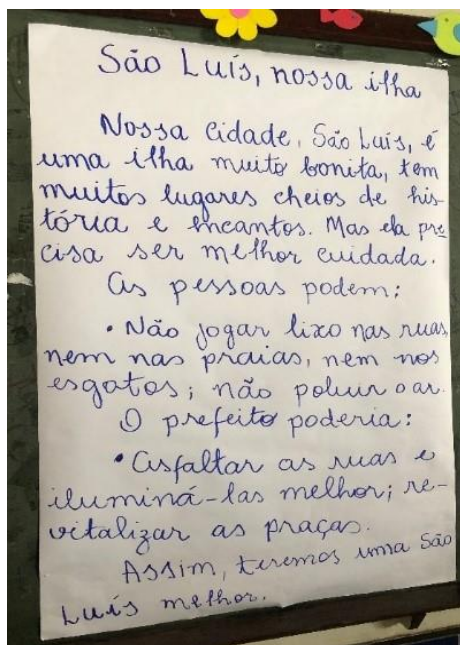 São Luís, nossa ilha
Nossa cidade, São Luís, é
uma ilha muito bonita, tem
muitos lugares cheios de his-
tória e encantos. Mas ela pre
cisa ser melhor cuidada.
As pessoas podem:
• Não jogar lixo nas ruas,
nem nas praias, nem nos
esgotos; não poluir o ar.
O prefeito poderia:
• Asfaltar as ruas e
iluminá-las melhor; re-
vitalizar as praças.
Assim, teremos uma São
Luís melhor.